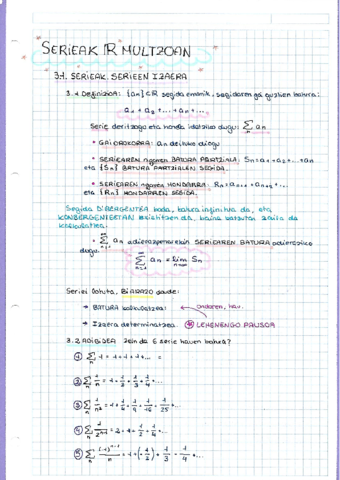 SERIEAK IR MULTZOAN
3.1. SERIEAK. SERIEEN IZAERA
3.1 Definizioa: {an} ⊂ IR segida emanik, segidaren gai guztien batura:
a1 + a2 + ... + an + ...
Serie deritzogu eta honela idatziko dugu: ∑ an
• GAI OROKORRA: an deituko diogu
• SERIEAREN ngarren BATURA PARTZIALA: Sn = a1 + a2 + ... + an
eta {Sn} BATURA PARTZIALEN SEGIDA.
• SERIEAREN ngarren HONDARRA: Rn = an+1 + an+2 + ...
eta {Rn} HONDARREN SEGIDA.
Segida DIBERGENTEA bada, batura infinitua da, eta
KONBERGENTEETAN existitzen da, baina batzutan zaila da
kalkulatzea.
• ∑ an adierazpenarekin SERIEAREN BATURA adieraziko
dugu.
∑ an = lim Sn
Seriei lotuta, BI ARAZO daude:
→ BATURA kalkulatzea: ondoren, hau.
→ Izaera determinatzea. LEHENENGO PAUSOA
3.2 ADIBIDEA Zein da 6 serie hauen batura?
① ∑ 1 = 1 + 1 + 1 + ... =
② ∑ 1/n = 1 + 1/2 + 1/3 + 1/4 + ...
③ ∑ 1/n² = 1 + 1/4 + 1/16 + 1/25 + ...
④ ∑ = 2 + 1 + 1/2 + 1/4 + ...
⑤ ∑ (-1)ⁿ⁻¹/n = 1 + (-1/2) + 1/3 - 1/4 + ...